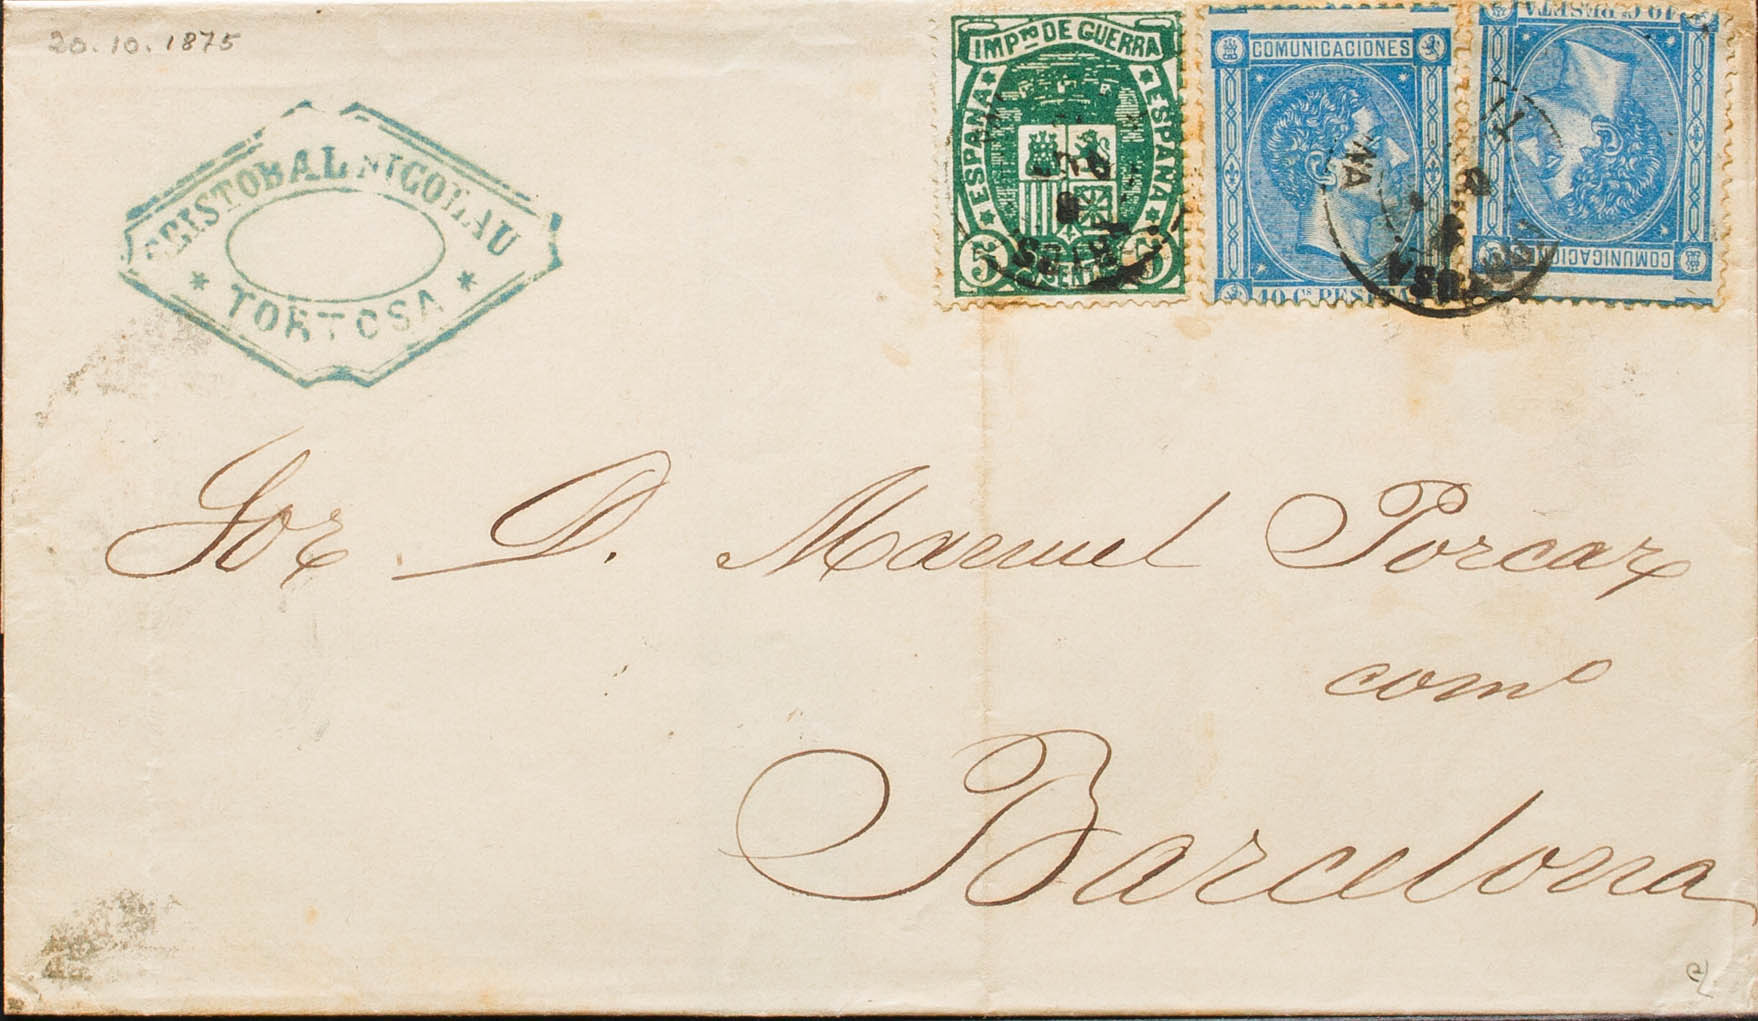 20.10.1875
CRISTOBAL NICOLAU
* TORTOSA *
IMPTO DE GUERRA
ESPAÑA
ESPAÑA
5
5
COMUNICACIONES
10 Cs PESETA
10 C PESETA
COMUNICACIO
TORTOSA
Sor. D. Manuel Porcar
como
Barcelona